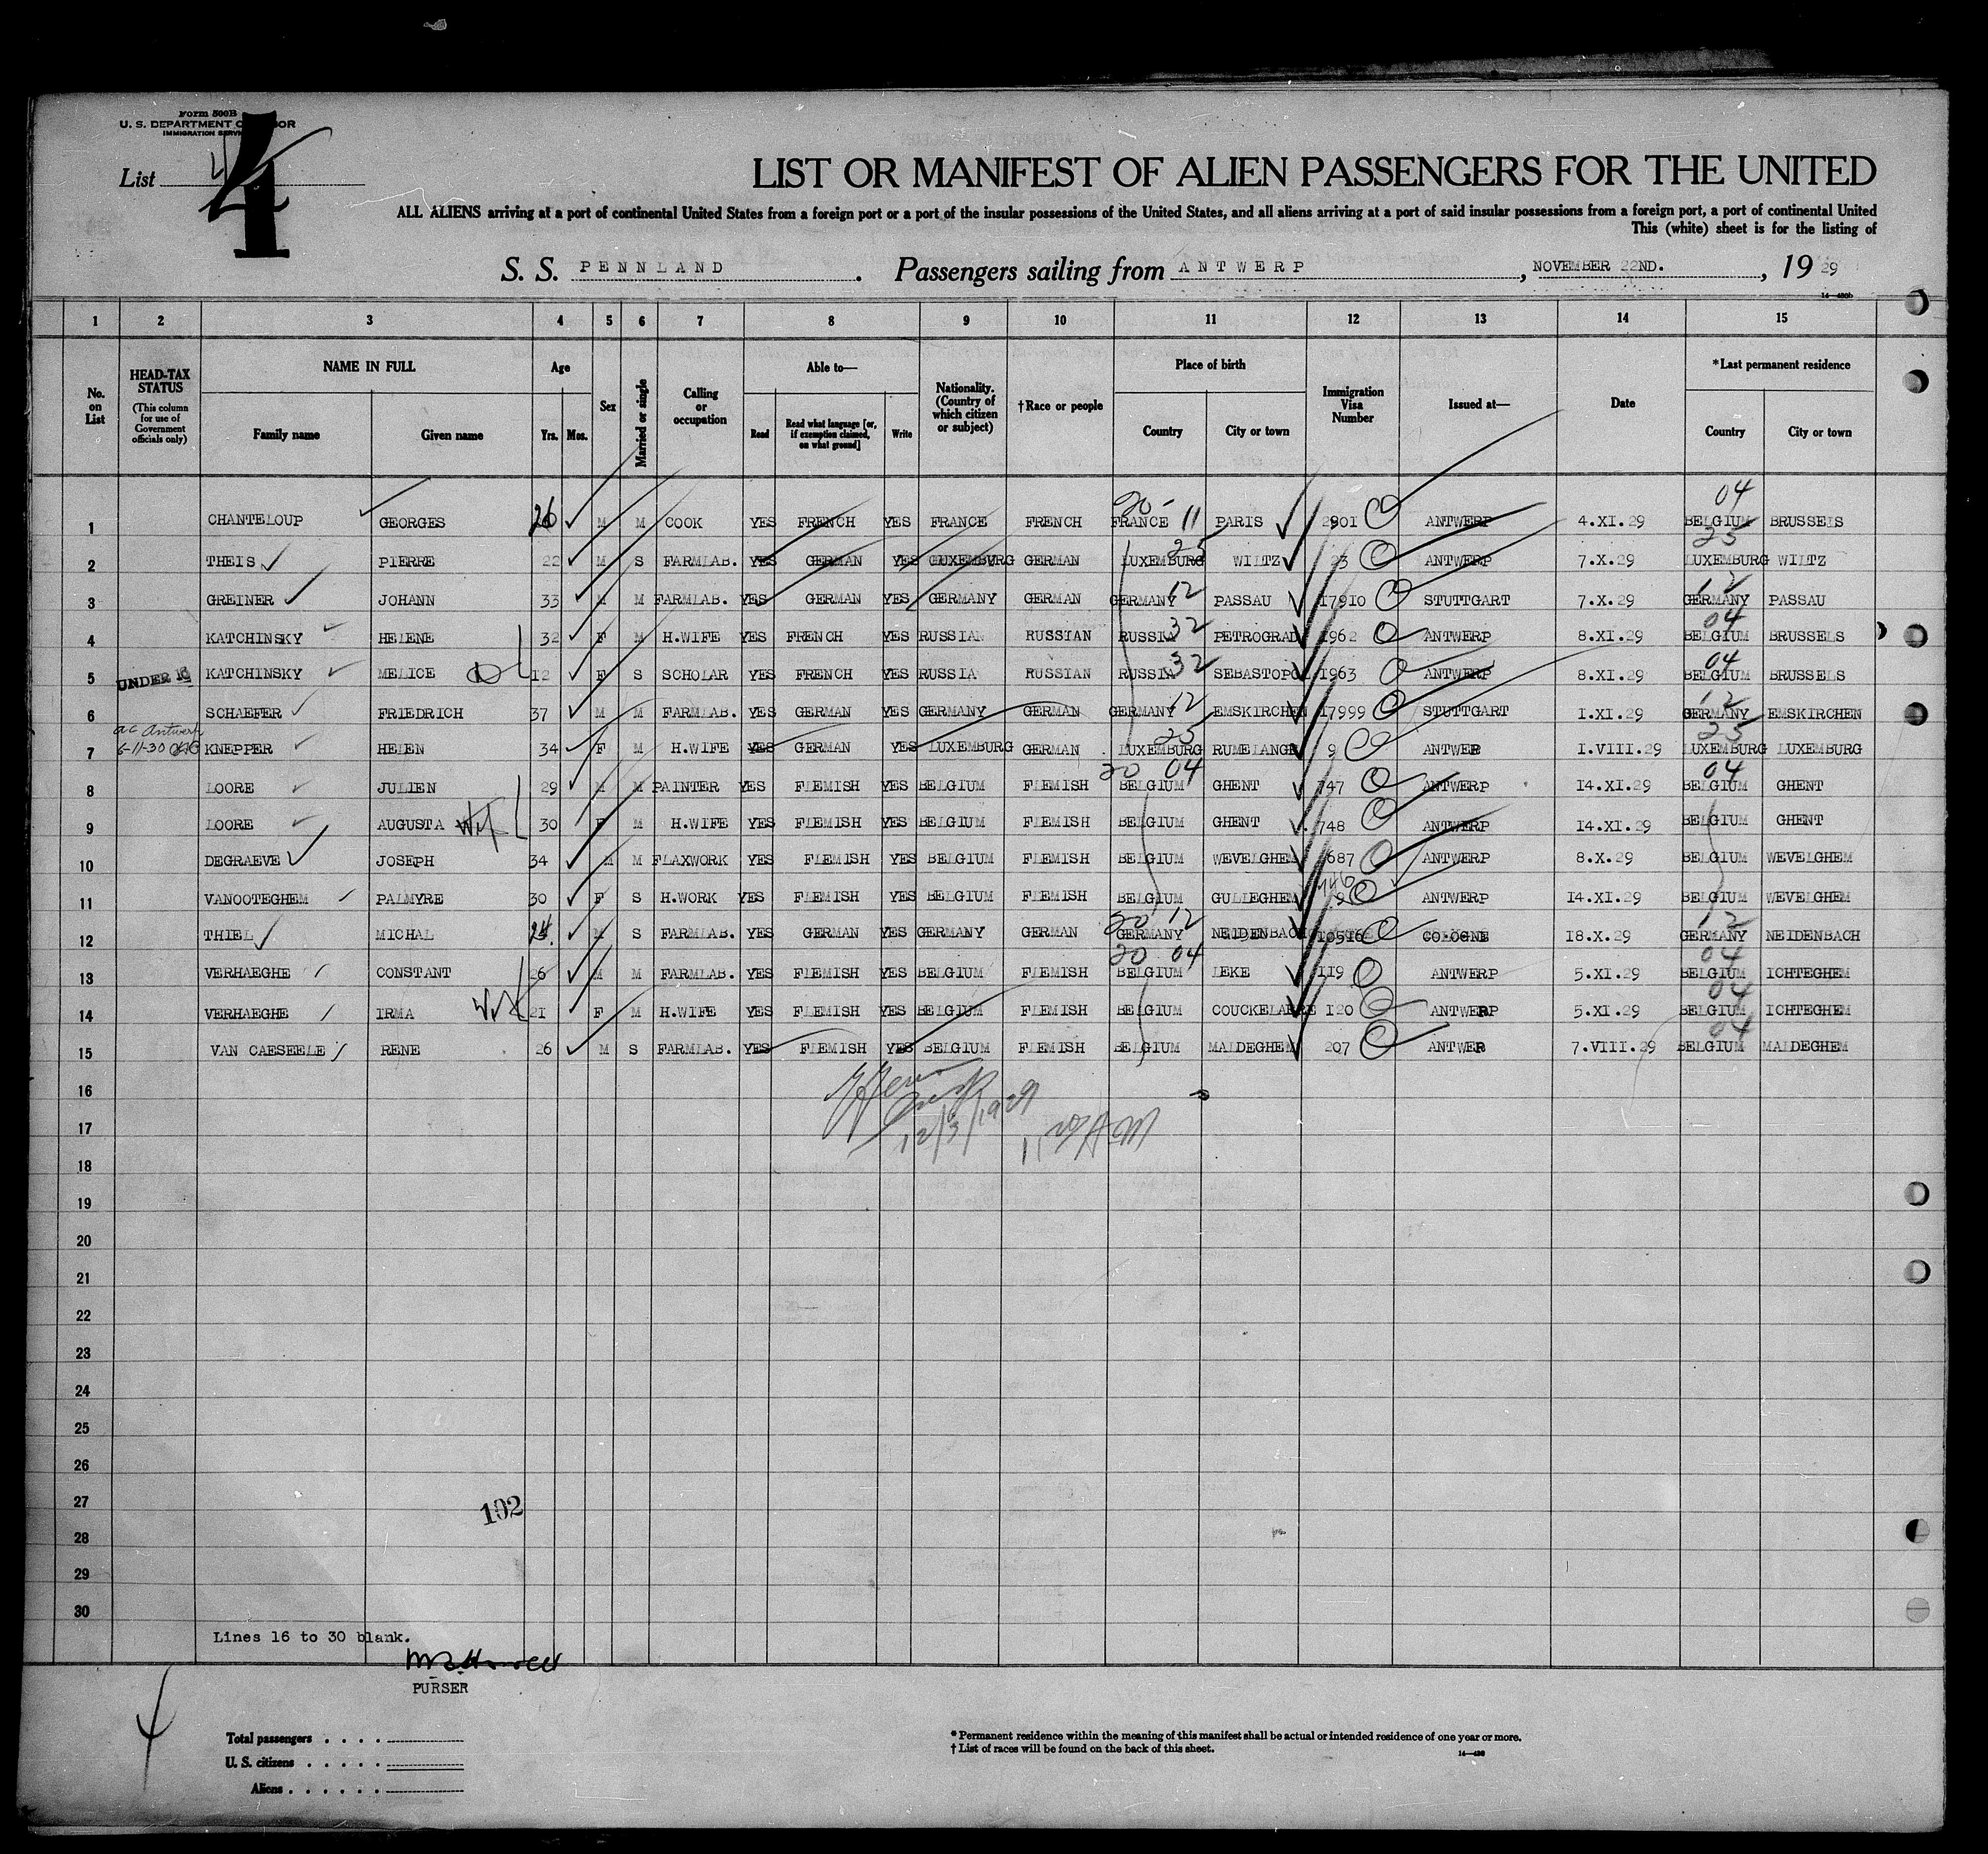 Form 500B
U. S. DEPARTMENT OF LABOR
IMMIGRATION SERVICE
List 4
4
LIST OR MANIFEST OF ALIEN PASSENGERS FOR THE UNITED
ALL ALIENS arriving at a port of continental United States from a foreign port or a port of the insular possessions of the United States, and all aliens arriving at a port of said insular possessions from a foreign port, a port of continental United
This (white) sheet is for the listing of
S. S. PENNLAND. Passengers sailing from ANTWERP, NOVEMBER 22ND., 1929
14—480b
1 2 3 4 5 6 7 8 9 10 11 12 13 14 15
No. on List
HEAD-TAX STATUS (This column for use of Government officials only)
NAME IN FULL Family name Given name
Age Yrs. Mos.
Sex
Married or single
Calling or occupation
Able to— Read Read what language [or, if exemption claimed, on what ground] Write
Nationality. (Country of which citizen or subject)
†Race or people
Place of birth Country City or town
Immigration Visa Number
Issued at—
Date
*Last permanent residence Country City or town
20- 04
1 CHANTELOUP GEORGES 26 M M COOK YES FRENCH YES FRANCE FRENCH FRANCE 11 PARIS 2901 ANTWERP 4.XI.29 BELGIUM BRUSSELS
25 25
2 THEIS PIERRE 22 M S FARMLAB. YES GERMAN YES LUXEMBURG GERMAN LUXEMBURG WILTZ 23 ANTWERP 7.X.29 LUXEMBURG WILTZ
12 12
3 GREINER JOHANN 33 M M FARMLAB. YES GERMAN YES GERMANY GERMAN GERMANY PASSAU 17910 STUTTGART 7.X.29 GERMANY PASSAU
32 04
4 KATCHINSKY HELENE 32 F M H.WIFE YES FRENCH YES RUSSIAN RUSSIAN RUSSIA PETROGRAD 1962 ANTWERP 8.XI.29 BELGIUM BRUSSELS
32 04
5 UNDER 16 KATCHINSKY MELICE 12 F S SCHOLAR YES FRENCH YES RUSSIA RUSSIAN RUSSIA SEBASTOPOL 1963 ANTWERP 8.XI.29 BELGIUM BRUSSELS
12 12
6 SCHAEFER FRIEDRICH 37 M M FARMLAB. YES GERMAN YES GERMANY GERMAN GERMANY EMSKIRCHEN 17999 STUTTGART I.XI.29 GERMANY EMSKIRCHEN
ac Antwerp
6-11-30
25 25
7 KNEPPER HELEN 34 F M H.WIFE YES GERMAN YES LUXEMBURG GERMAN LUXEMBURG RUMELANGE 9 ANTWER I.VIII.29 LUXEMBURG LUXEMBURG
20 04 04
8 LOORE JULIEN 29 M M PAINTER YES FLEMISH YES BELGIUM FLEMISH BELGIUM GHENT 747 ANTWERP 14.XI.29 BELGIUM GHENT
9 LOORE AUGUSTA Wif 30 F M H.WIFE YES FLEMISH YES BELGIUM FLEMISH BELGIUM GHENT 748 ANTWERP I4.XI.29 BELGIUM GHENT
10 DEGRAEVE JOSEPH 34 M M FLAXWORK YES FLEMISH YES BELGIUM FLEMISH BELGIUM WEVELGHEM 687 ANTWERP 8.X.29 BELGIUM WEVELGHEM
746
11 VANOOTEGHEM PALMYRE 30 F S H.WORK YES FLEMISH YES BELGIUM FLEMISH BELGIUM GULLEGHEM 9 ANTWERP I4.XI.29 BELGIUM WEVELGHEM
20 12 12
12 THIEL MICHAL 24 M S FARMLAB. YES GERMAN YES GERMANY GERMAN GERMANY NEIDENBACH 10516 COLOGNE I8.X.29 GERMANY NEIDENBACH
20 04 04
13 VERHAEGHE CONSTANT 26 M M FARMLAB. YES FLEMISH YES BELGIUM FLEMISH BELGIUM LEKE 119 ANTWERP 5.XI.29 BELGIUM ICHTEGHEM
04
14 VERHAEGHE IRMA Wif 21 F M H.WIFE YES FLEMISH YES BELGIUM FLEMISH BELGIUM COUCKELAERE I20 ANTWERP 5.XI.29 BELGIUM ICHTEGHEM
04
15 VAN CAESEELE RENE 26 M S FARMLAB. YES FLEMISH YES BELGIUM FLEMISH BELGIUM MALDEGHEM 207 ANTWER 7.VIII.29 BELGIUM MALDEGHEM
16
12/3/1929
17
18
19
20
21
22
23
24
25
26
27
102
28
29
30
Lines 16 to 30 blank.
PURSER
Total passengers
U. S. citizens
Aliens
* Permanent residence within the meaning of this manifest shall be actual or intended residence of one year or more.
† List of races will be found on the back of this sheet.
14—480